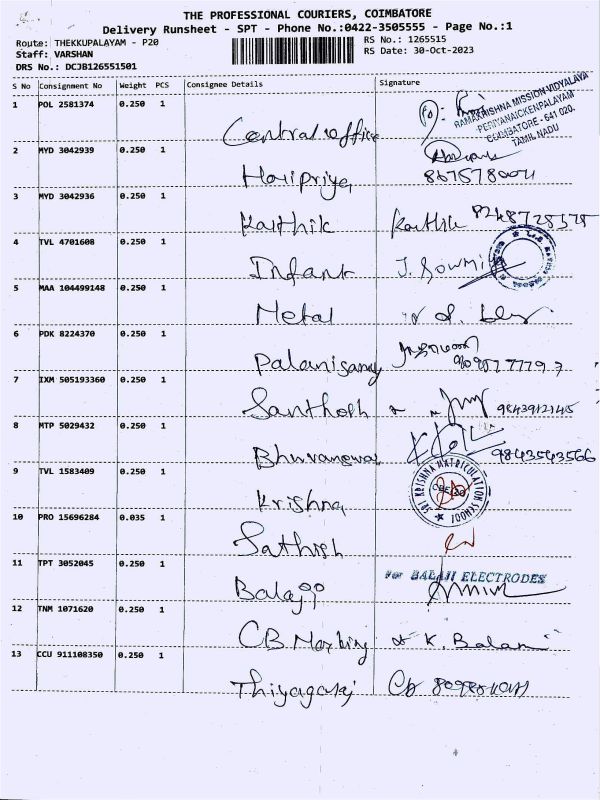 THE PROFESSIONAL COURIERS, COIMBATORE
Delivery Runsheet - SPT - Phone No.:0422-3505555 - Page No.:1
Route: THEKKUPALAYAM - P20
RS No.: 1265515
Staff: VARSHAN
RS Date: 30-Oct-2023
DRS No.: DCJB126551501
S No Consignment No Weight PCS Consignee Details Signature
1 POL 2581374 0.250 1
RAMAKRISHNA MISSION VIDYALAYA
PERIYANAICKENPALAYAM
COIMBATORE - 641 020.
TAMIL NADU
Central office
2 MYD 3042939 0.250 1
Haripriya
3 MYD 3042936 0.250 1
Karthik Karthik
4 TVL 4701608 0.250 1
Infant J. Sowmiya
5 MAA 104499148 0.250 1
Metal
6 PDK 8224370 0.250 1
Palanisamy
7 IXM 505193360 0.250 1
Santhosh 9843912145
8 MTP 5029432 0.250 1
Bhuvaneswari 9843543566
9 TVL 1583409 0.250 1
SRI KRISHNA MATRICULATION SCHOOL
Krishna
10 PRO 15696284 0.035 1
Sathish
11 TPT 3052045 0.250 1
For BALAJI ELECTRODES
Balaji
12 TNM 1071620 0.250 1
CB K. Balami
13 CCU 911108350 0.250 1
Thiyagaraj